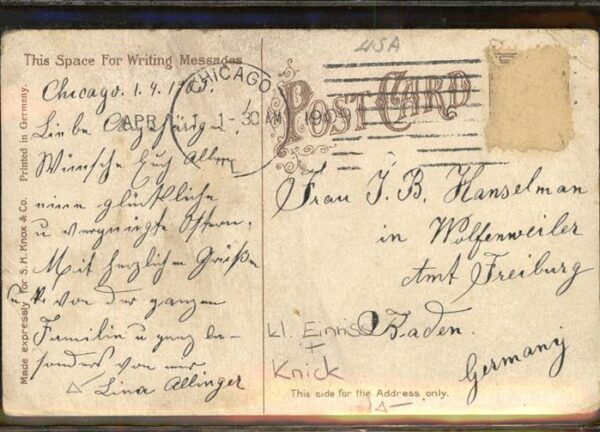 This Space For Writing Messages
Made expressly for S. H. Knox & Co. Printed in Germany.
Chicago. 1. 4. 190
Liebe Angehörigen,
Wünsche Euch Allen
eine glückliche
u vergnügte Ostern.
Mit herzlichen Grüßen
u. K. von der ganzen
Familie u ganz be-
sonders von mir
Lina Allinger
CHICAGO
APR 1 1-30 AM 190
USA
POST CARD
Frau J. B. Hanselman
in Wolfenweiler
Amt Freiburg
Baden.
Germany
kl. Einriss
+
Knick
This side for the Address only.